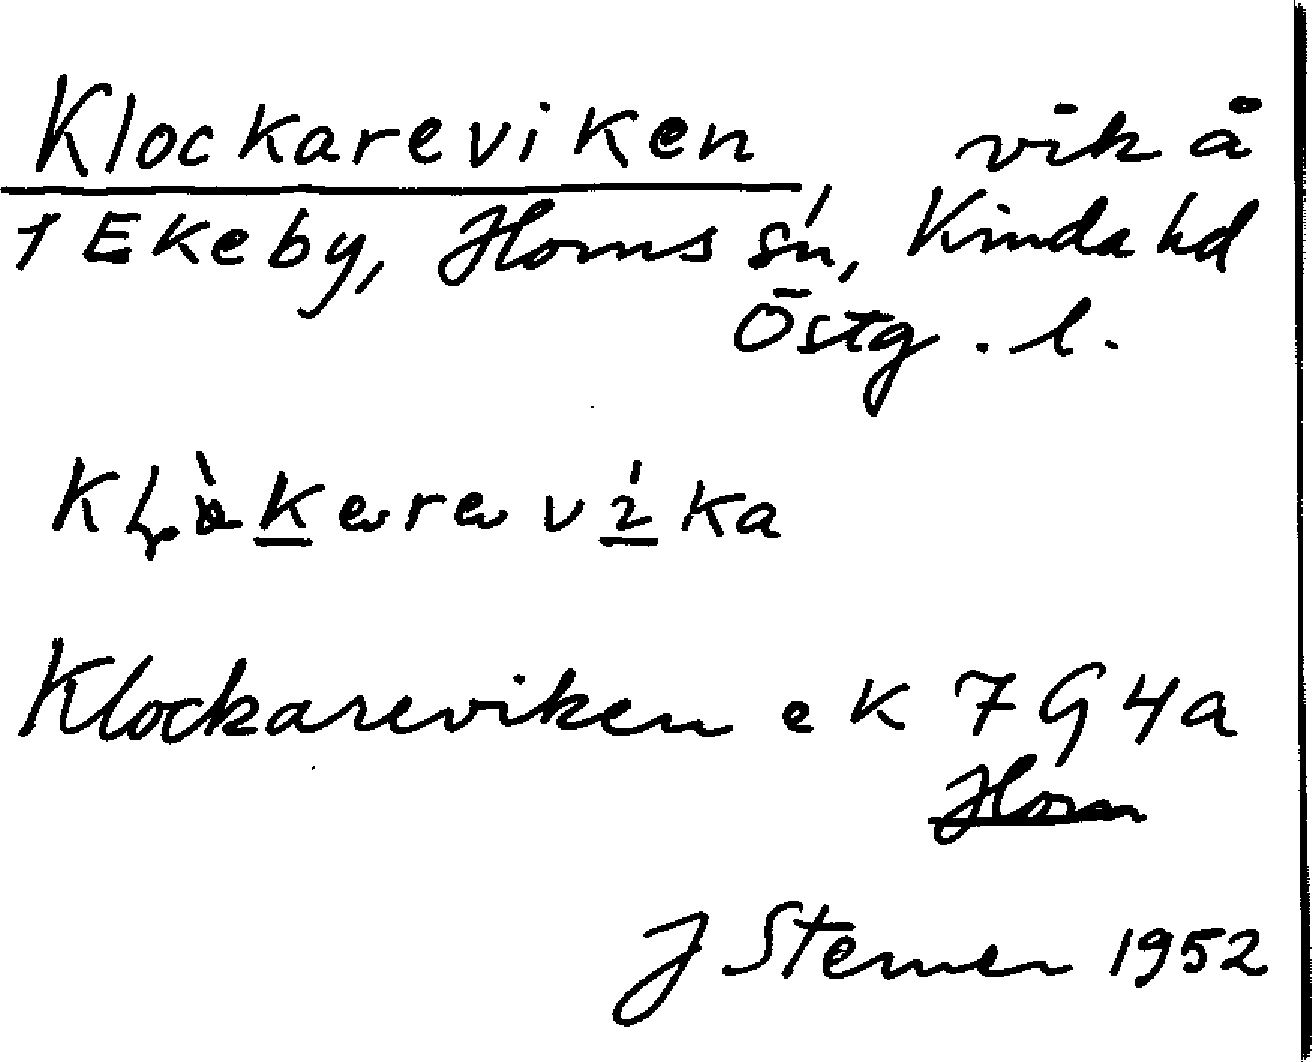 Klockareviken vik å
1 Ekeby, Horns sn, Kinda hd
Östg. l.
Klockareviken ek 7G4a
Horn
J Sterner 1952